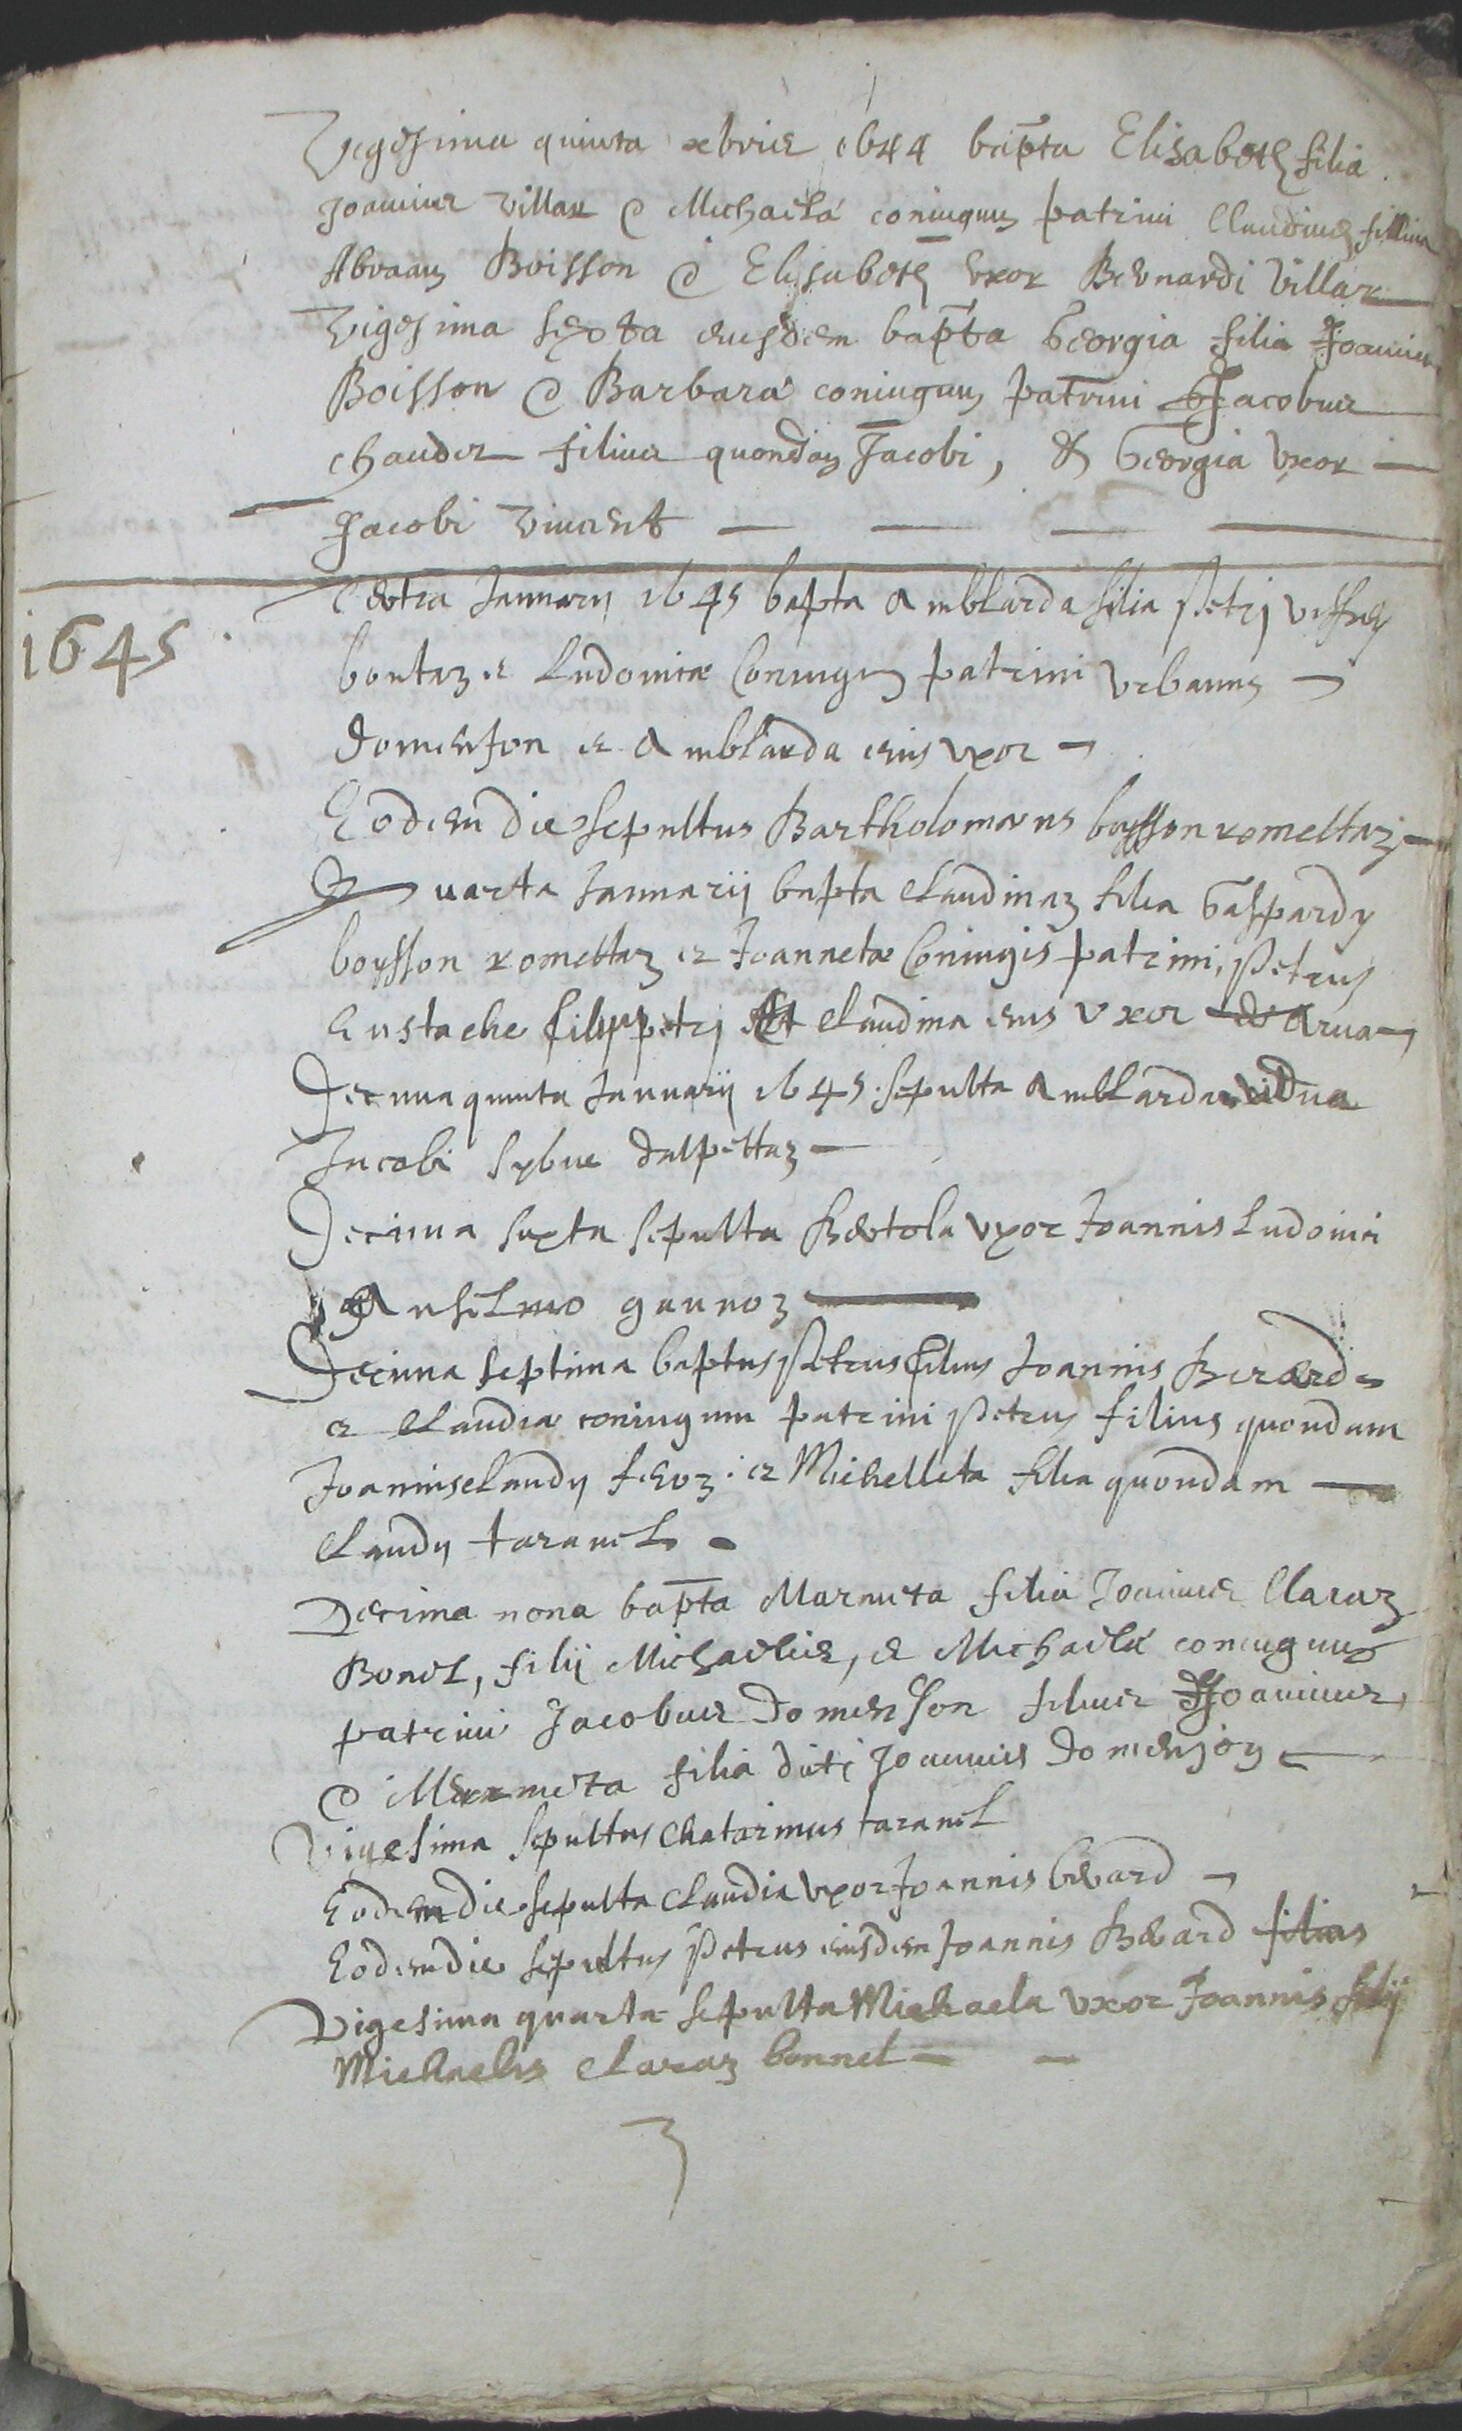 Vigesima quinta xbris 1644 bapta Elisabeth filia
Joannis Villar & Michaelæ coniugum patrini Claudius filius
Abraam Boisson & Elisabeth uxor Bernardi Villar
Vigesima sexta eiusdem bapta Georgia filia Joannis
Boisson & Barbaræ coniugum patrini Jacobus
filius quondam Jacobi, & Georgia Uxor
Jacobi Vincent
1645
Tertia Januarij 1645 bapta Amblarda filia Petrj
bontaz et Ludovicæ Coniugum patrini Urbanus
domenjon et Amblarda eius uxor
Eodem die sepultus Bartholomæus boysson romettaz
Quarta Januarij bapta Claudina filia Gaspardy
boysson romettaz et Joannetæ Coniugis patrini, Petrus
Eustache filius petrj Et Claudina eius Uxor
Decima quinta Januarij 1645 sepulta Amblarda vidua
Jacobi Sybue dalpettaz
Decima sexta sepulta Bertola uxor Joannis Ludovici
Anselmo gaunoz
Decima septima baptus Petrus filius Joannis Berard
et Claudiæ coniugum patrini Petrus filius quondam
Joannis Claudy feroz et Michelleta filia quondam
Claudy taravel
Decima nona bapta Marmeta filia Joannis Claraz
Bonel, filij Michaelis, et Michaelæ coniugum
patrini Jacobus Domenjon filius Joannis
& Mermeta filia dicti Joannis Domenjon
Vigesima sepultus Chatarinus taravel
Eodem die sepulta Claudia uxor Joannis berard
Eodem die sepultus Petrus eiusdem Joannis Berard filius
Vigesima quarta sepulta Michaela uxor Joannis filij
Michaelis Claraz bonnel